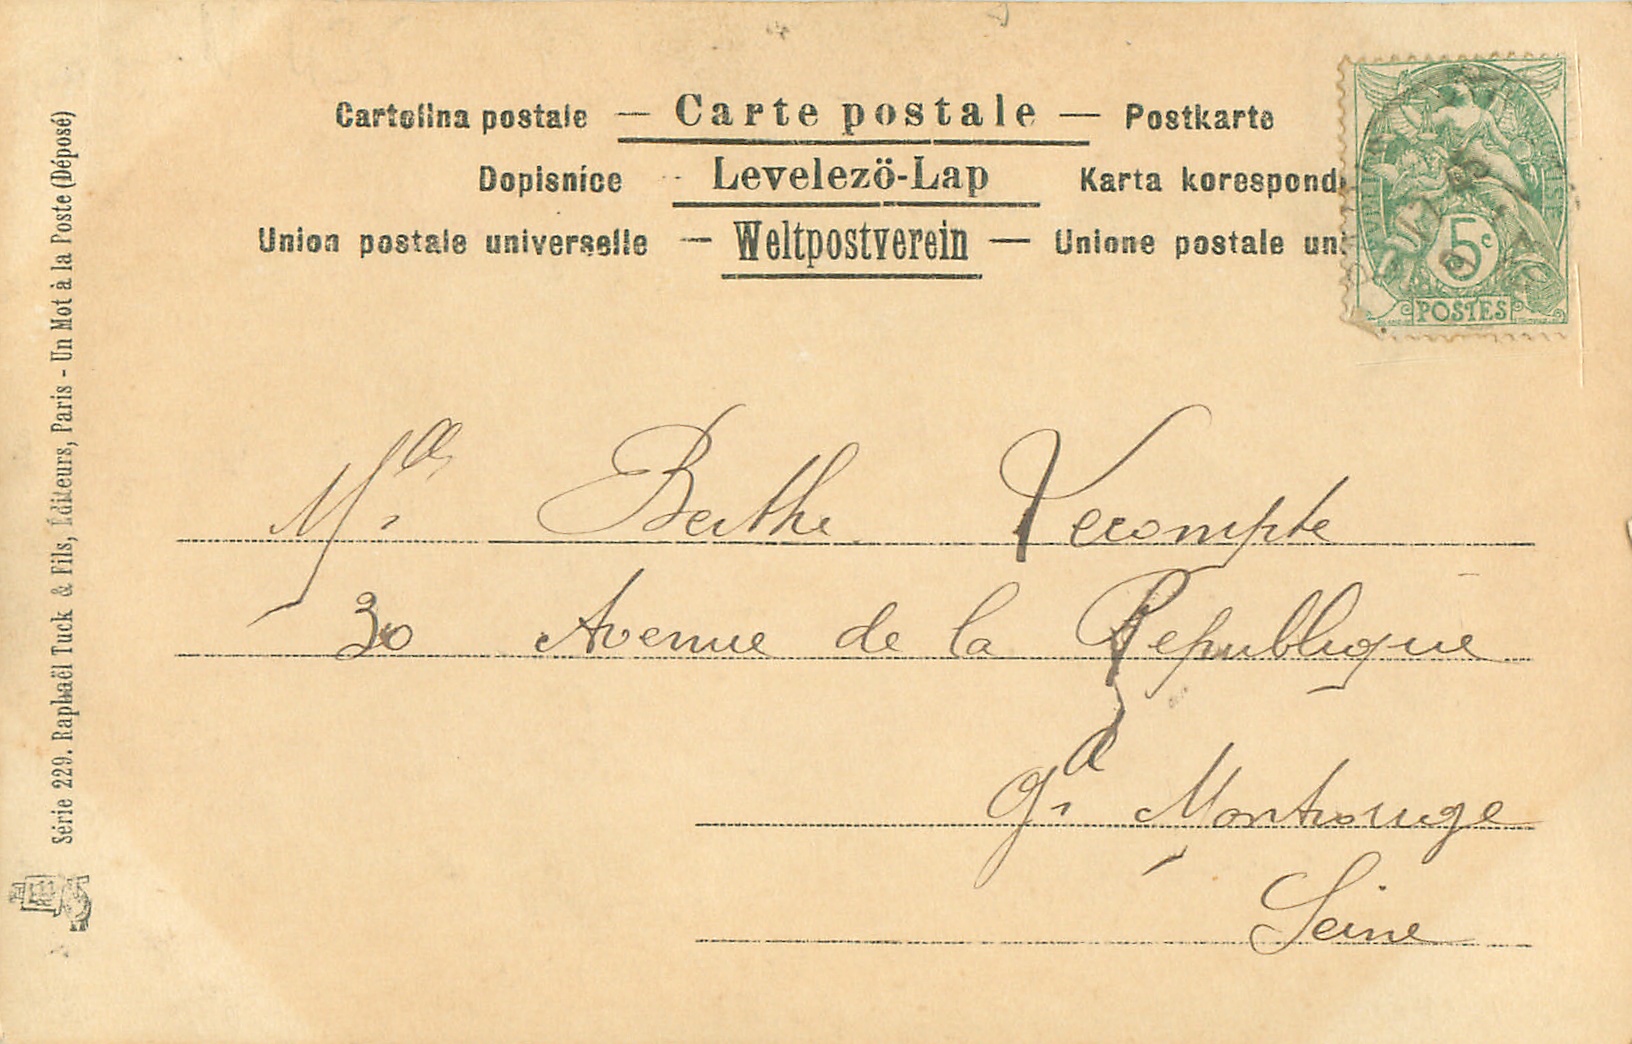 Cartolina postale — Carte postale — Postkarte
Dopisnice - Levelezö-Lap Karta korespond
Union postale universelle — Weltpostverein — Unione postale uni
5c
POSTES
Mlle Berthe Lecompte
30 Avenue de la République
Gd Montrouge
Seine
Série 229. Raphaël Tuck & Fils, Éditeurs, Paris - Un Mot à la Poste (Déposé)